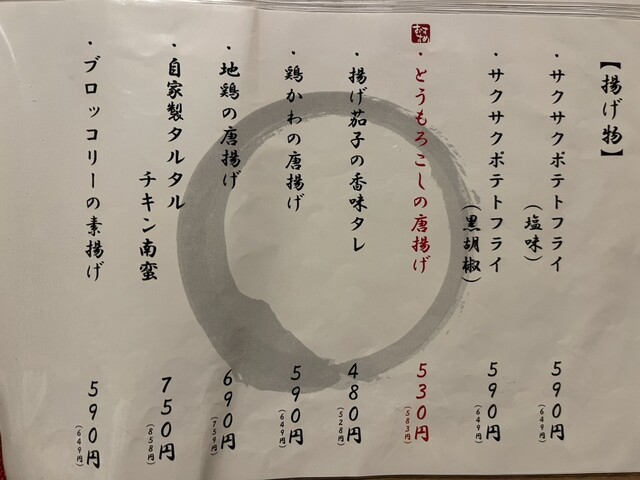 【揚げ物】
・サクサクポテトフライ
(塩味)
590円
(649円)
・サクサクポテトフライ
(黒胡椒)
590円
(649円)
おすすめ
・とうもろこしの唐揚げ
530円
(583円)
・揚げ茄子の香味タレ
480円
(528円)
・鶏かわの唐揚げ
590円
(649円)
・地鶏の唐揚げ
690円
(759円)
・自家製タルタル
チキン南蛮
750円
(858円)
・ブロッコリーの素揚げ
590円
(649円)